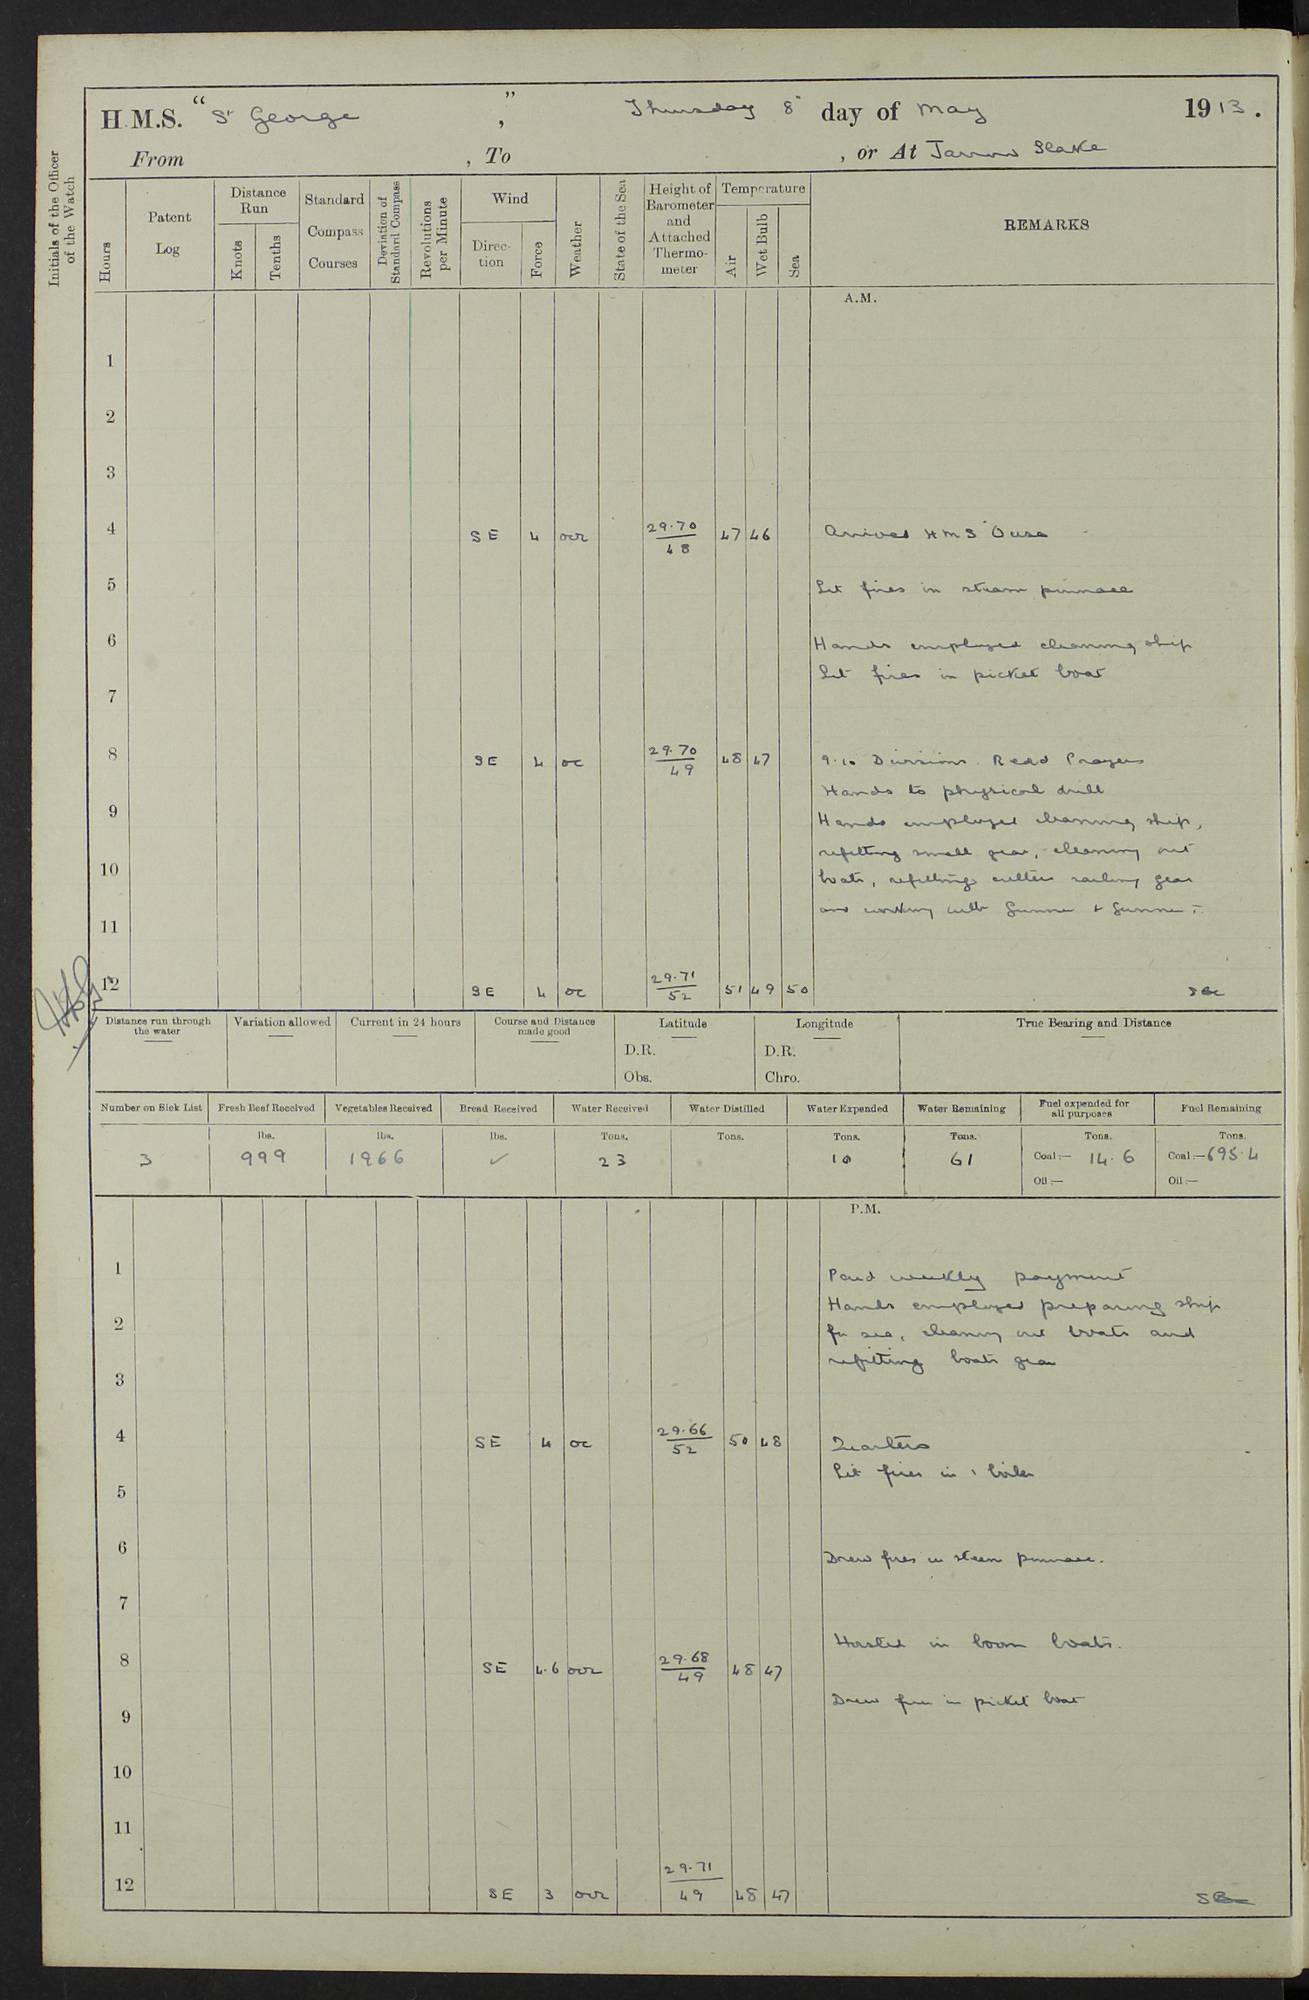 H.M.S. "St George", Thursday 8th day of May 1913.
From , To , or At Jarrow Slake
Initials of the Officer of the Watch
Hours
Patent Log
Distance Run
Knots
Tenths
Standard Compass Courses
Deviation of Standard Compass
Revolutions per Minute
Wind
Direction
Force
Weather
State of the Sea
Height of Barometer and Attached Thermometer
Temperature
Air
Wet Bulb
Sea
REMARKS
A.M.
1
2
3
4 SE 4 ocr 29.70 48 47 46 Arrived HMS Ouse
5 Lit fires in steam pinnace
6 Hands employed cleaning ship
Lit fires in picket boat
7
8 SE 4 oc 29.70 49 48 47 9.10 Divisions Read Prayers
Hands to physical drill
9 Hands employed cleaning ship,
refitting small gear, cleaning out
10 boats, refitting cutters sailing gear
and working with Gunner & Gunner T
11
12 SE 4 oc 29.71 52 51 49 50
Distance run through the water
Variation allowed
Current in 24 hours
Course and Distance made good
Latitude
D.R.
Obs.
Longitude
D.R.
Chro.
True Bearing and Distance
Number on Sick List
Fresh Beef Received
Vegetables Received
Bread Received
Water Received
Water Distilled
Water Expended
Water Remaining
Fuel expended for all purposes
Fuel Remaining
lbs. lbs. lbs. Tons. Tons. Tons. Tons. Tons. Tons.
3 999 1966 ✓ 23 10 61 Coal:— 14.6 Coal:— 695.4
Oil:— Oil:—
P.M.
1 Paid weekly payment
Hands employed preparing ship
2 for sea, cleaning out boats and
refitting boats gear
3
4 SE 4 oc 29.66 52 50 48 Quarters
Lit fires in 1 boiler
5
6 Drew fires in steam pinnace.
7
Hoisted in boom boats.
8 SE 4.6 ocr 29.68 49 48 47
Drew fires in picket boat
9
10
11
12 SE 3 ocr 29.71 49 48 47